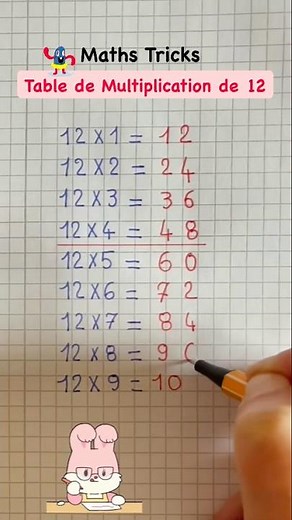 Maths Tricks
Table de Multiplication de 12
12 x 1 = 12
12 x 2 = 24
12 x 3 = 36
12 x 4 = 48
12 x 5 = 60
12 x 6 = 72
12 x 7 = 84
12 x 8 = 9
12 x 9 = 10